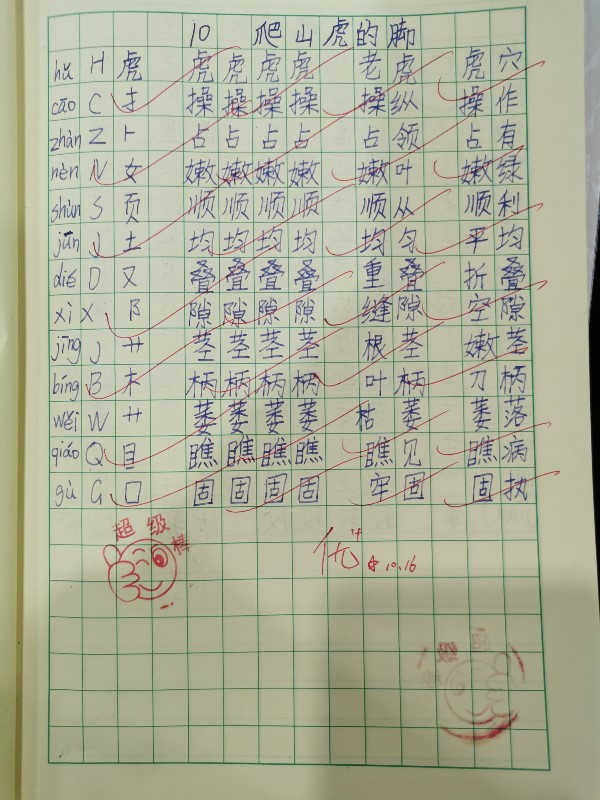 10 爬山虎的脚
hǔ H 虎 虎虎虎虎 老虎 虎穴
cāo C 扌 操操操操 操纵 操作
zhàn Z ⺊ 占占占占 占领 占有
nèn N 女 嫩嫩嫩嫩 嫩叶 嫩绿
shùn S 页 顺顺顺顺 顺从 顺利
jūn J 土 均均均均 均匀 平均
dié D 又 叠叠叠叠 重叠 折叠
xì X 阝 隙隙隙隙 缝隙 空隙
jīng J 艹 茎茎茎茎 根茎 嫩茎
bǐng B 木 柄柄柄柄 叶柄 刀柄
wěi W 艹 萎萎萎萎 枯萎 萎落
qiáo Q 目 瞧瞧瞧瞧 瞧见 瞧病
gù G 囗 固固固固 牢固 固执
超级棒
优+ 10.16